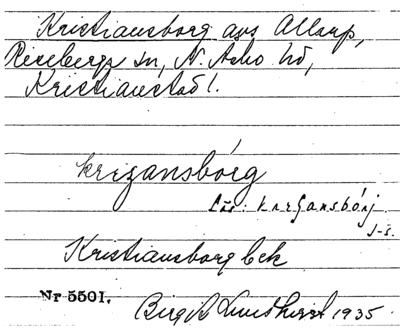 Kristiansborg avs Allarp,
Riseberga sn, N. Åsbo hd,
Kristianstad l.
krısansbórg
Läs: krısansbórj
J-s.
Kristiansborg bek
Nr 5501.
Birgit Lundkvist 1935.